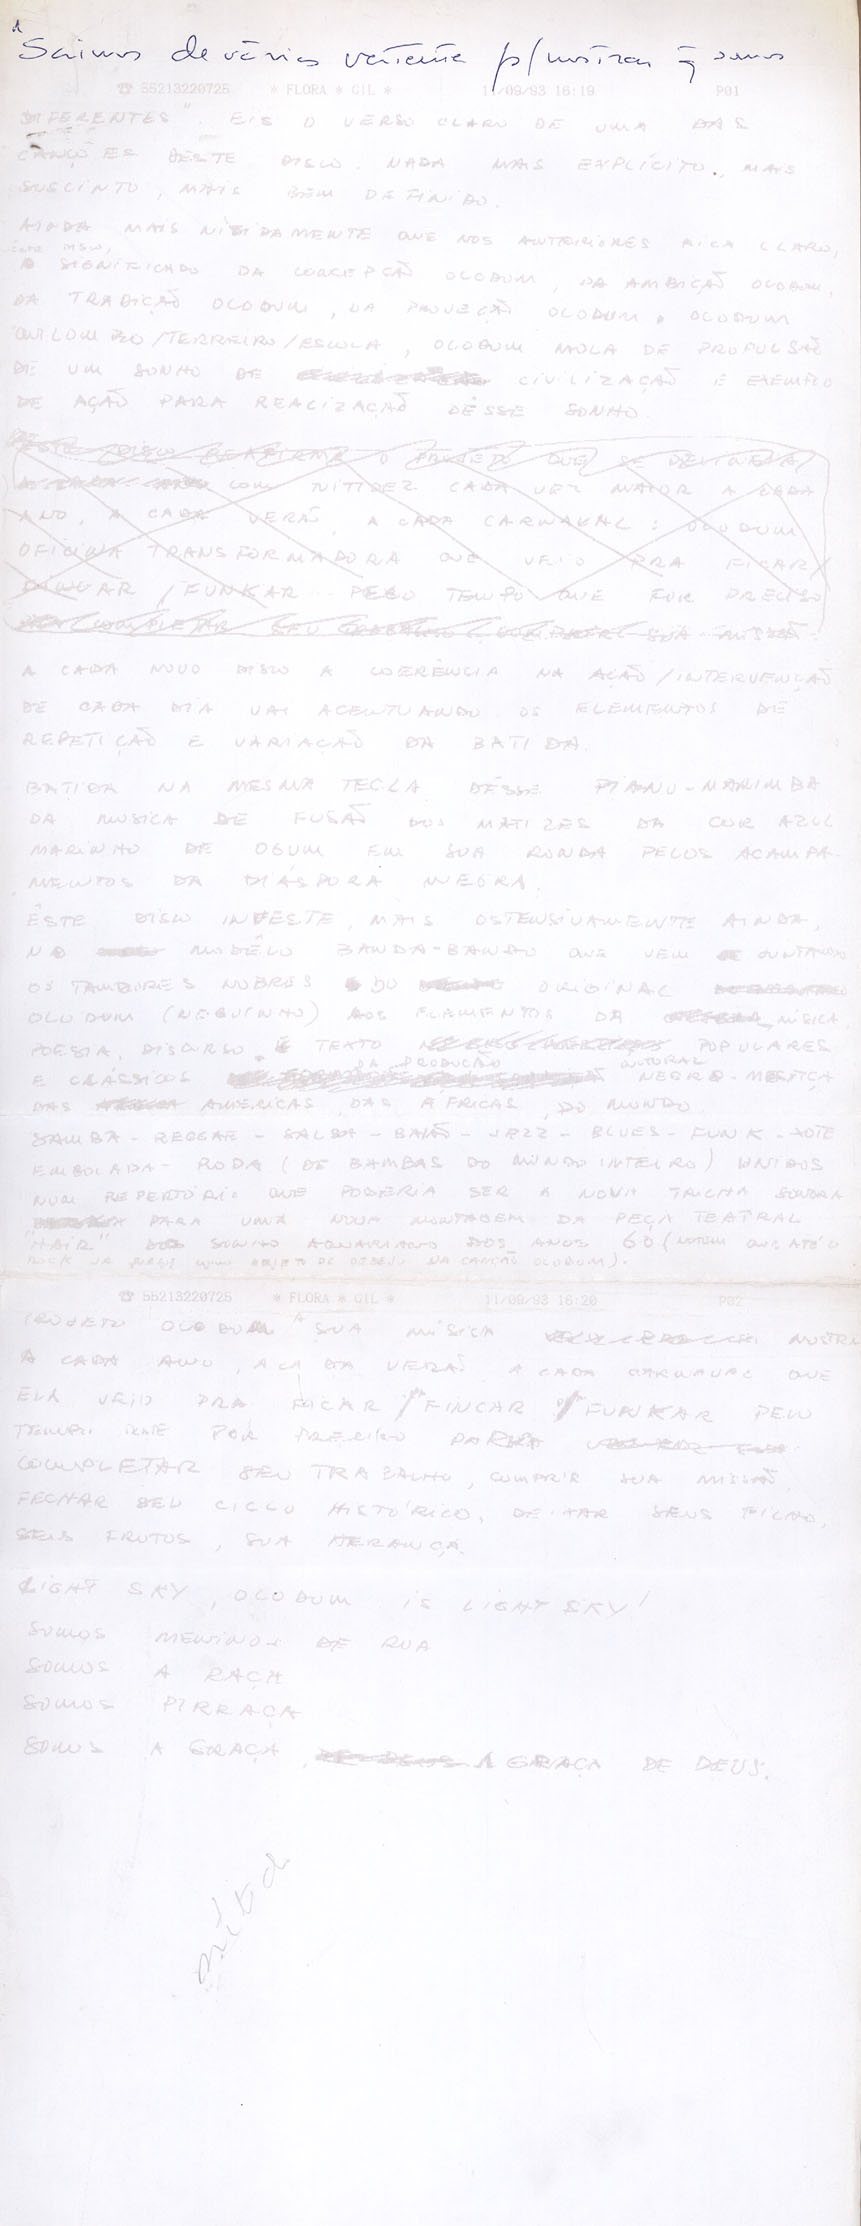 "Saimos de vários vertente p/ mostrar q̃ somos
☎ 55213220725 * FLORA * GIL * 11/09/93 16:19 P01
DIFERENTES". EIS O VERSO CLARO DE UMA DAS
CANÇÕES DESTE DISCO. NADA MAIS EXPLÍCITO, MAIS
SUSCINTO, MAIS BEM DEFINIDO.
AINDA MAIS NITIDAMENTE QUE NOS ANTERIORES FICA CLARO,
COM ISSO,
O SIGNIFICADO DA CONCEPÇÃO OLODUM, DA AMBIÇÃO OLODUM,
DA TRADIÇÃO OLODUM, DA PROVEÇÃO OLODUM, OLODUM
QUILOMBO/TERREIRO/ESCOLA, OLODUM MOLA DE PROPULSÃO
DE UM SONHO DE CIVILIZAÇÃO E EXEMPLO
DE AÇÃO PARA REALIZAÇÃO DÊSSE SONHO.
ESTE DISCO REAFIRMA O PROJETO QUE SE DELINEIA
COM NITIDEZ CADA VEZ MAIOR A CADA
ANO, A CADA VERÃO, A CADA CARNAVAL: OLODUM
OFICINA TRANSFORMADORA QUE VEIO PRA FICAR/
FINCAR/FUNKAR PELO TEMPO QUE FOR PRECISO
COMPLETAR SEU TRABALHO SUA MISSÃO.
A CADA NOVO DISCO A COERÊNCIA NA AÇÃO/INTERVENÇÃO
DE CADA DIA VAI ACENTUANDO OS ELEMENTOS DE
REPETIÇÃO E VARIAÇÃO DA BATIDA.
BATIDA NA MESMA TECLA DÊSSE PIANO-MARIMBA
DA MUSICA DE FUSÃO DOS MATIZES DA COR AZUL
MARINHO DE OGUM EM SUA RONDA PELOS ACAMPA-
MENTOS DA DIÁSPORA NEGRA.
ÊSTE DISCO INVESTE, MAIS OSTENSIVAMENTE AINDA,
NO MODÊLO BANDA-BANDO QUE VEM JUNTANDO
OS TAMBORES NOBRES DO ORIGINAL
OLODUM (NEGUINHO) AOS ELEMENTOS DA MÚSICA,
POESIA, DISCURSO E TEXTO POPULARES
DA PRODUÇÃO AUTORAL
E CLÁSSICOS NEGRO-MESTIÇA
DAS AMERICAS, DAS AFRICAS, DO MUNDO
SAMBA-REGGAE-SALSA-BAIÃO-JAZZ-BLUES-FUNK-XOTE
EMBOLADA-RODA (DE BAMBAS DO MUNDO INTEIRO) UNIDOS
NUM REPERTÓRIO QUE PODERIA SER A NOVA TRILHA SONORA
PARA UMA NOVA MONTAGEM DA PEÇA TEATRAL
"HAIR" SONHO AQUARIANO DOS ANOS 60 (NOTEM QUE ATÉ O
ROCK JÁ SURGE COMO OBJETO DE DESEJO NA CANÇÃO OLODUM).
☎ 55213220725 * FLORA * GIL * 11/09/93 16:20 P02
PROJETO OLODUM "SUA MÚSICA MOSTRA
A CADA ANO, A CADA VERÃO A CADA CARNAVAL QUE
ELA VEIO PRA FICAR/FINCAR/FUNKAR PELO
TEMPO QUE FOR PRECISO PARA
COMPLETAR SEU TRABALHO, CUMPRIR SUA MISSÃO,
FECHAR SEU CICLO HISTÓRICO, DEIXAR SEUS FILHOS,
SEUS FRUTOS, SUA HERANÇA.
LIGHT SKY, OLODUM IS LIGHT SKY!
SOMOS MENINOS DE RUA
SOMOS A RAÇA
SOMOS PIRRAÇA
SOMOS A GRAÇA, A GRAÇA DE DEUS.